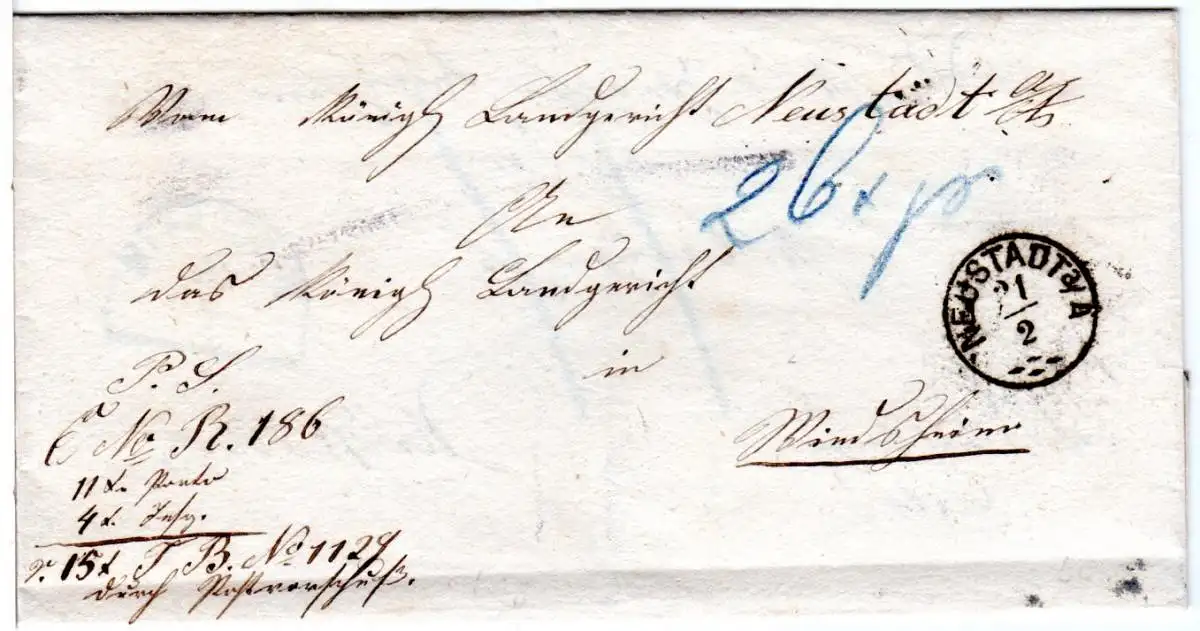 Vom Königl Landgericht Neustadt a/A
26 x pr
An
das Königl Landgericht
in
Windsheim
NEUSTADT a/A
21/2
P. S.
No R. 186
11 x. Porto
4 x.
15 x T. B. No 1129
durch Postvorschuß.